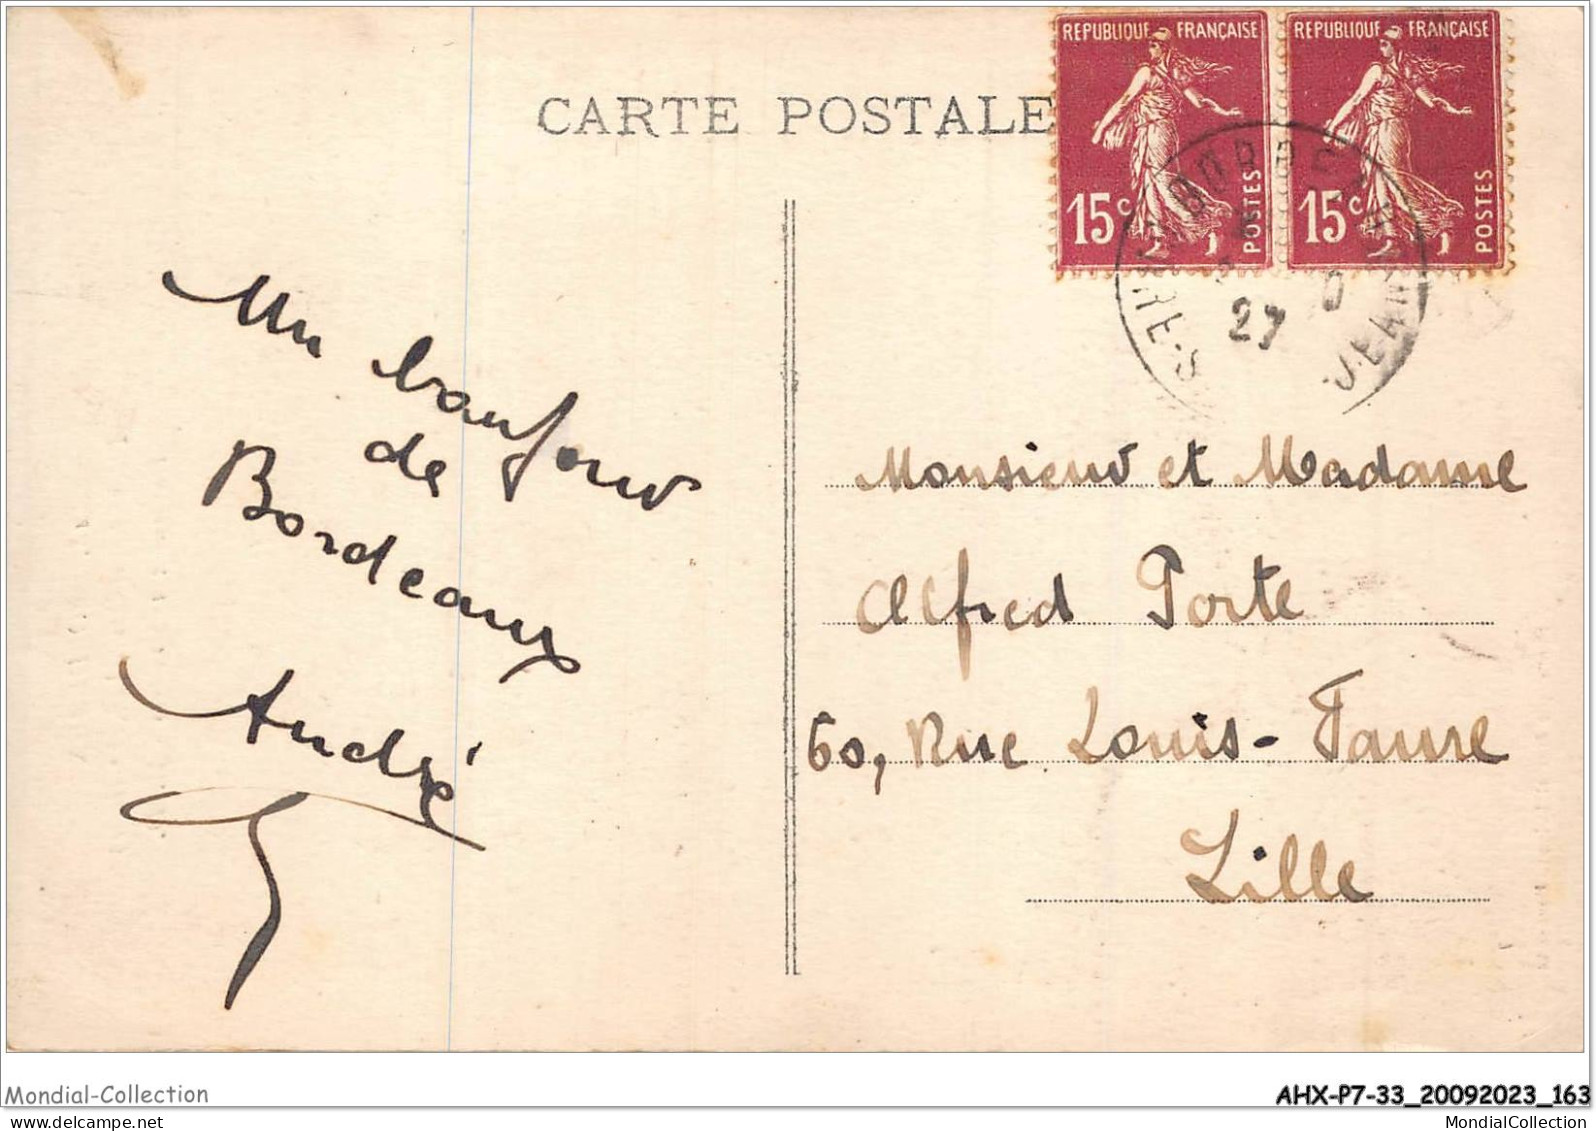 CARTE POSTALE
REPUBLIQUE FRANÇAISE
15c
POSTES
REPUBLIQUE FRANÇAISE
15c
POSTES
27
Un bonjour
de
Bordeaux
André
Monsieur et Madame
Alfred Porte
60, Rue Louis-Faure
Lille
Mondial-Collection
AHX-P7-33_20092023_163
MondialCollection